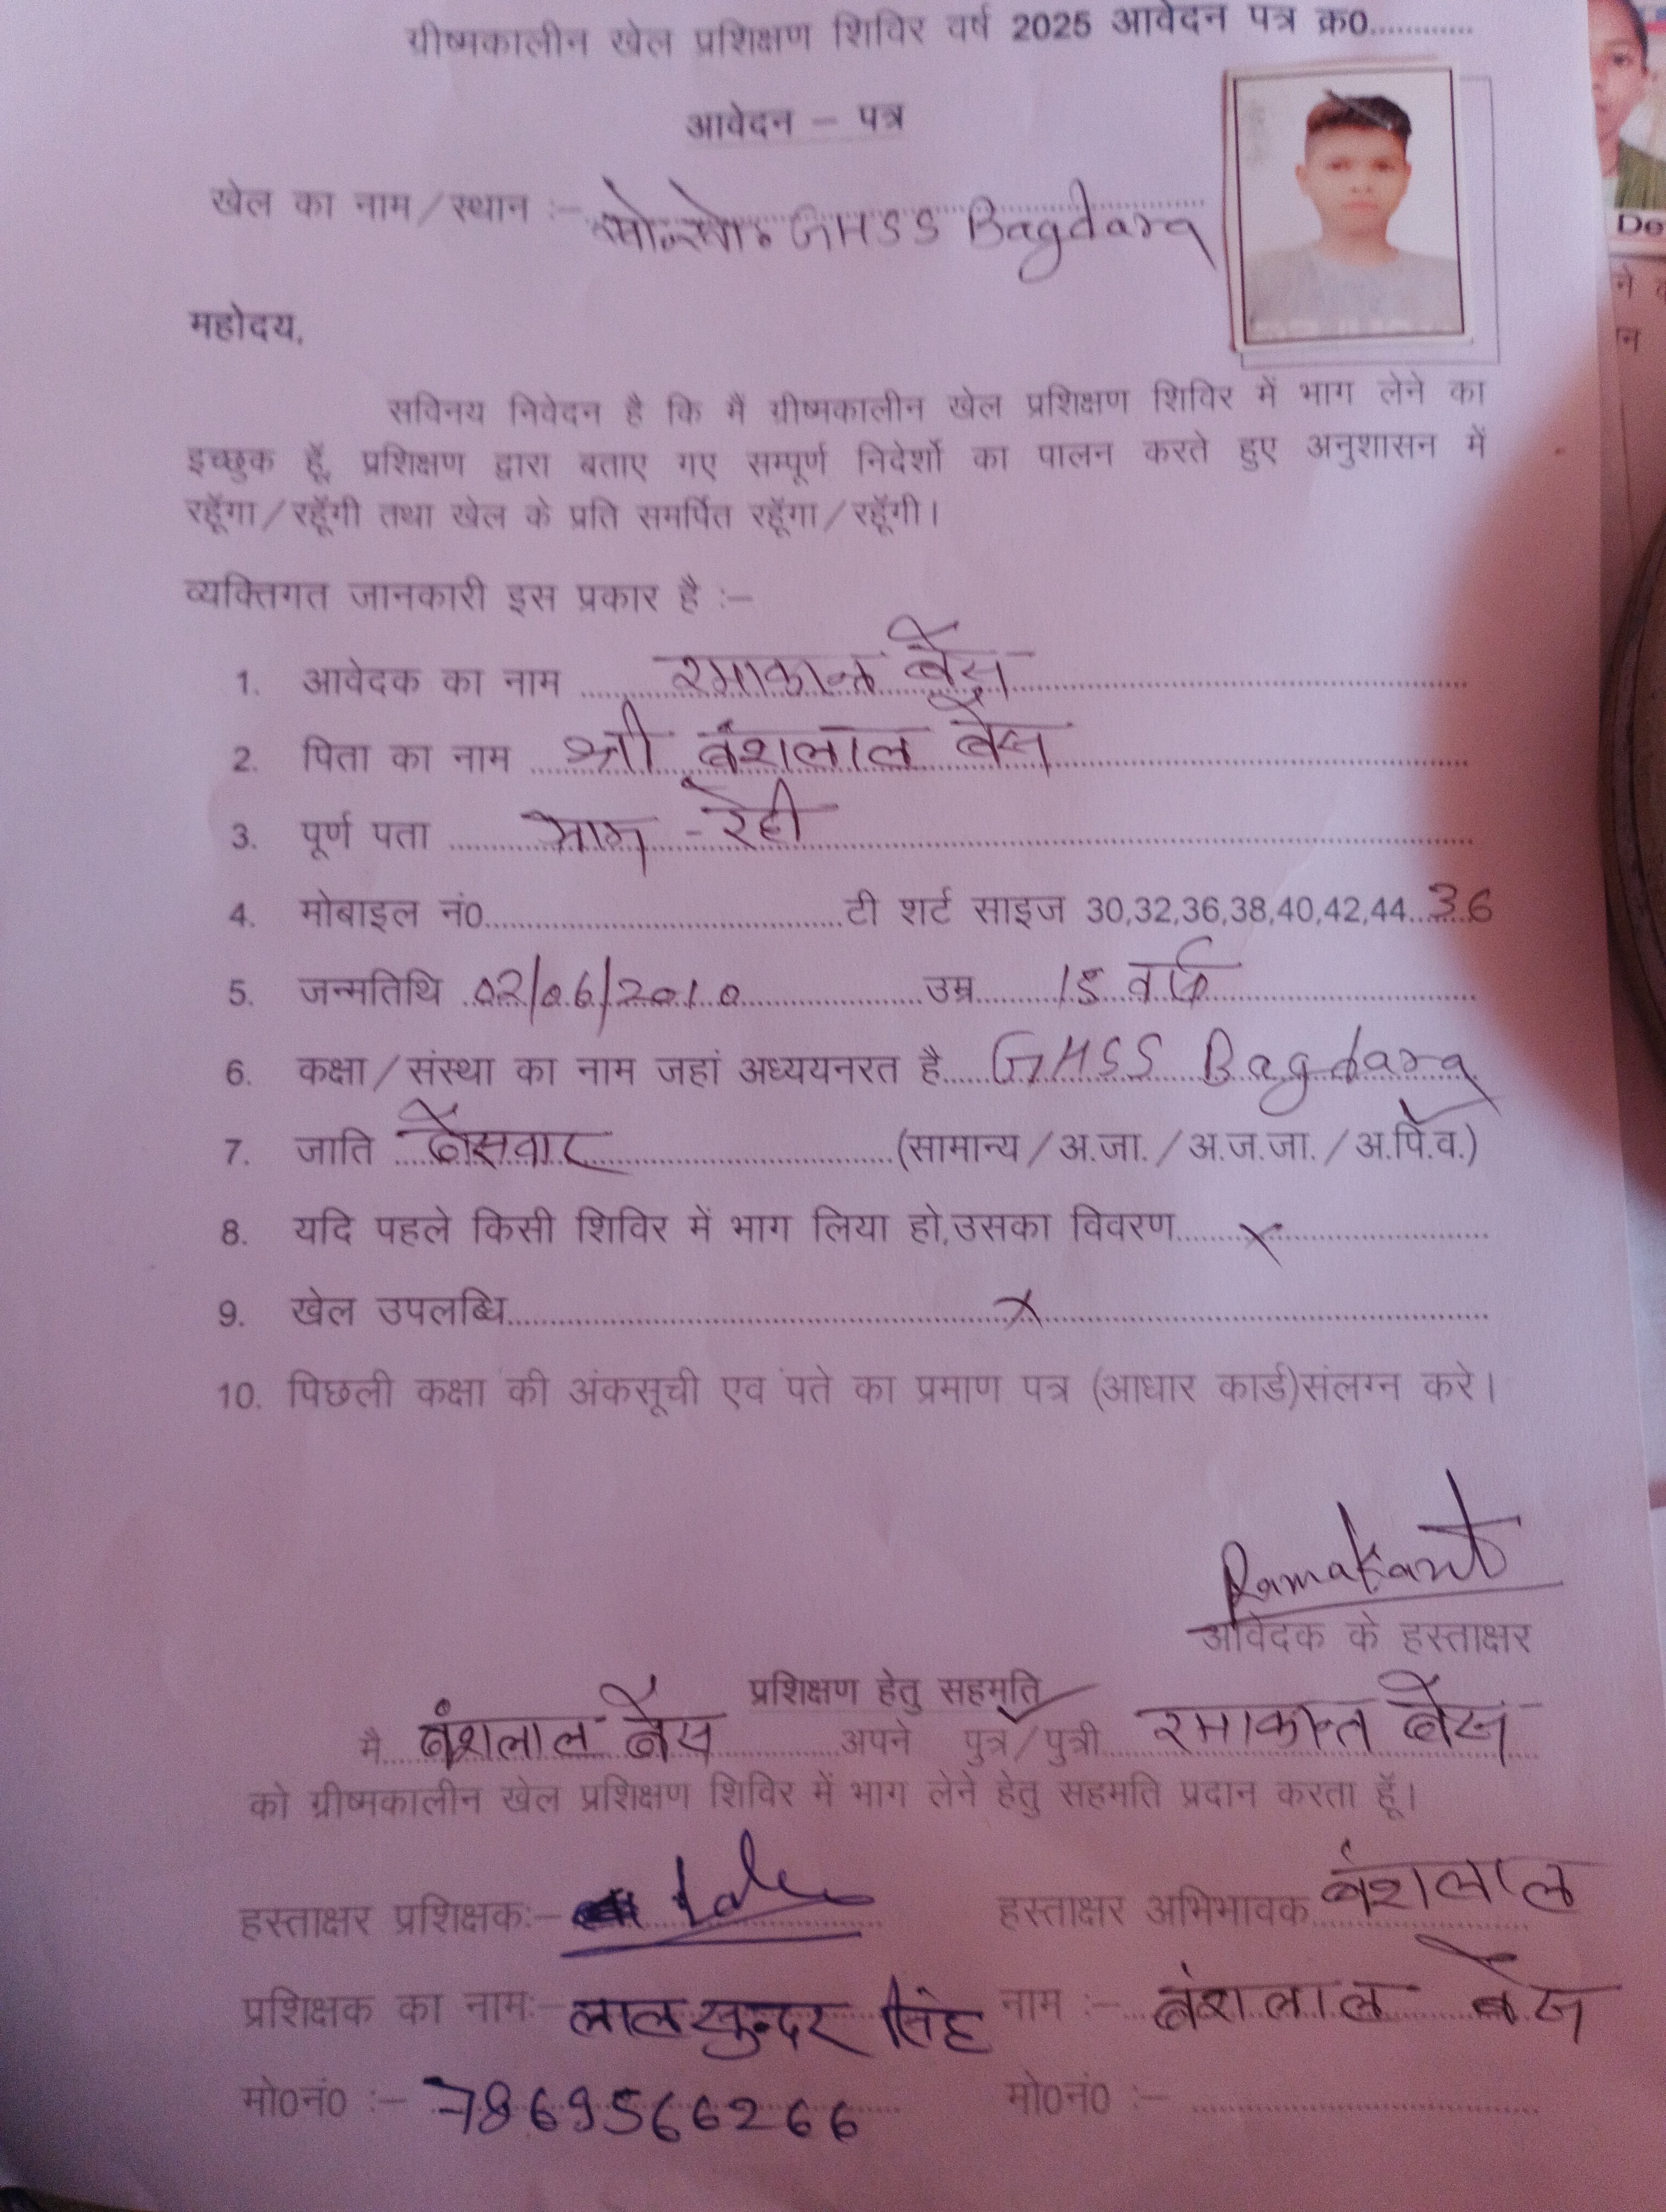 ग्रीष्मकालीन खेल प्रशिक्षण शिविर वर्ष 2025 आवेदन पत्र क्र0............
आवेदन – पत्र
खेल का नाम/स्थान :– खो-खो GHSS Bagdara
महोदय,
सविनय निवेदन है कि मैं ग्रीष्मकालीन खेल प्रशिक्षण शिविर में भाग लेने का
इच्छुक हूॅ, प्रशिक्षण द्वारा बताए गए सम्पूर्ण निदेर्शो का पालन करते हुए अनुशासन में
रहूॅगा/रहूॅगी तथा खेल के प्रति समर्पित रहूॅगा/रहूॅगी।
व्यक्तिगत जानकारी इस प्रकार है :–
1. आवेदक का नाम रमाकान्त बैस
2. पिता का नाम श्री बंशलाल बैस
3. पूर्ण पता ग्राम - रेही
4. मोबाइल नं0.............टी शर्ट साइज 30,32,36,38,40,42,44 36
5. जन्मतिथि 02/06/2010 उम्र 15 वर्ष
6. कक्षा/संस्था का नाम जहां अध्ययनरत है GHSS Bagdara
7. जाति बैसवार (सामान्य/अ.जा./अ.ज.जा./अ.पि.व.)
8. यदि पहले किसी शिविर में भाग लिया हो,उसका विवरण x
9. खेल उपलब्धि x
10. पिछली कक्षा की अंकसूची एव पते का प्रमाण पत्र (आधार कार्ड)संलग्न करे।
Ramakant
आवेदक के हस्ताक्षर
प्रशिक्षण हेतु सहमति
मै बंशलाल बैस अपने पुत्र/पुत्री रमाकान्त बैस
को ग्रीष्मकालीन खेल प्रशिक्षण शिविर में भाग लेने हेतु सहमति प्रदान करता हूॅ।
हस्ताक्षर प्रशिक्षक:– हस्ताक्षर अभिभावक बंशलाल
प्रशिक्षक का नाम:– लाल सुन्दर सिंह नाम :– बंशलाल बैस
मो0नं0 :– 7869566266 मो0नं0 :–